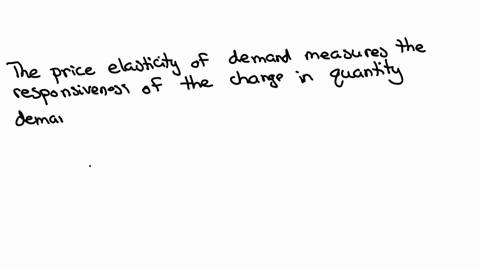 The price elasticity of demand measures the
responsiveness of the change in quantity
deman